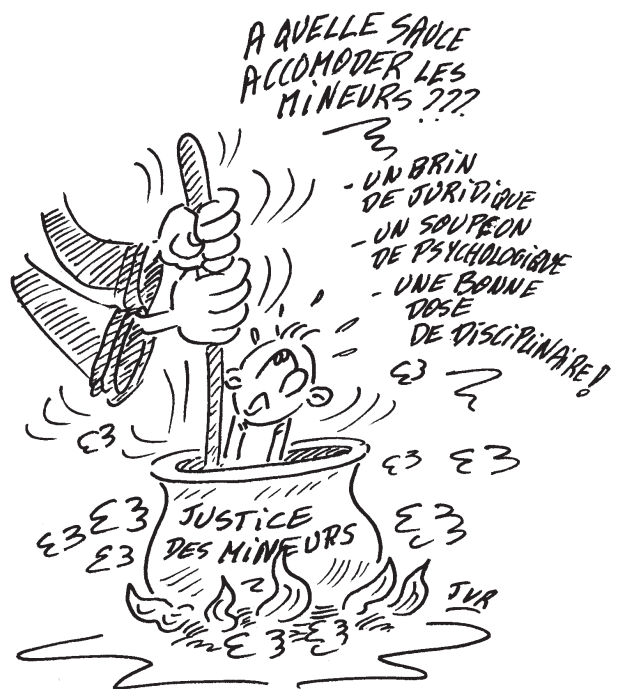 A QUELLE SAUCE
ACCOMODER LES
MINEURS ???
- UN BRIN
DE JURIDIQUE
- UN SOUPÇON
DE PSYCHOLOGIQUE
- UNE BONNE
DOSE
DE DISCIPLINAIRE!
JUSTICE
DES MINEURS
JVR